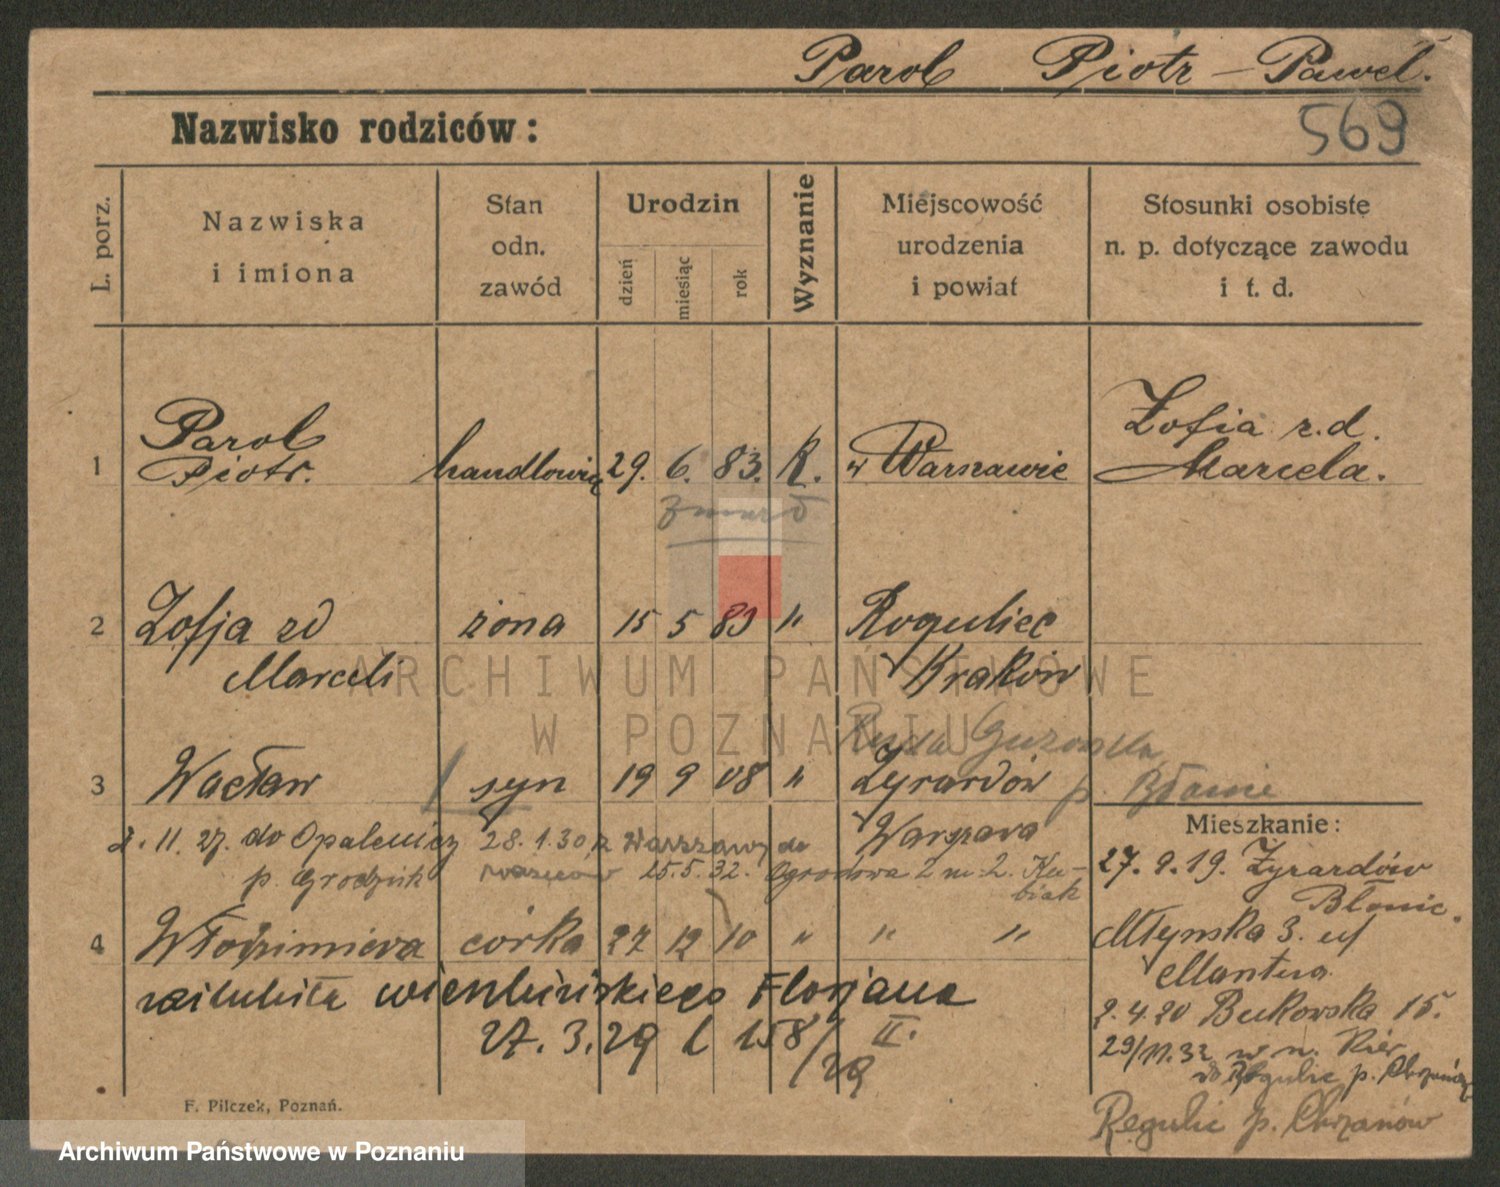 Parol Piotr – Paweł.
Nazwisko rodziców:
569
L. porz.
Nazwiska
i imiona
Stan
odn.
zawód
Urodzin
dzień
miesiąc
rok
Wyznanie
Miejscowość
urodzenia
i powiat
Stosunki osobiste
n. p. dotyczące zawodu
i t. d.
1 Parol
Piotr. handlowiec 29. 6. 83. R. w Warszawie
Zofia z.d.
Marcela.
zmarł
2 Zofja zd żona 15 5 83 " Roguliec
Marceli Kraków
Ruda Guzowska
p. Błonie
3 Wacław syn 19 9 08 " Żyrardów
Warszawa
2. 11. 27. do Opalenicy 28.1.30 z Warszawy do
p. Grodzisk 15.5.32. Ogrodowa 2 m. 2. Ku-
biak
4 Włodzimiera córka 27 12 10 " " "
Florjana
27. 3. 29 L 158/29 II.
Mieszkanie:
27. 9. 19. Żyrardów
Błonie.
Młyńska 3. u/
Mantua
2.4.20 Bukowska 15.
29/11.32 w n. Kier
do Regulic p. Chrzanów
Regulic p. Chrzanów
F. Pilczek, Poznań.
ARCHIWUM PAŃSTWOWE
W POZNANIU
Archiwum Państwowe w Poznaniu